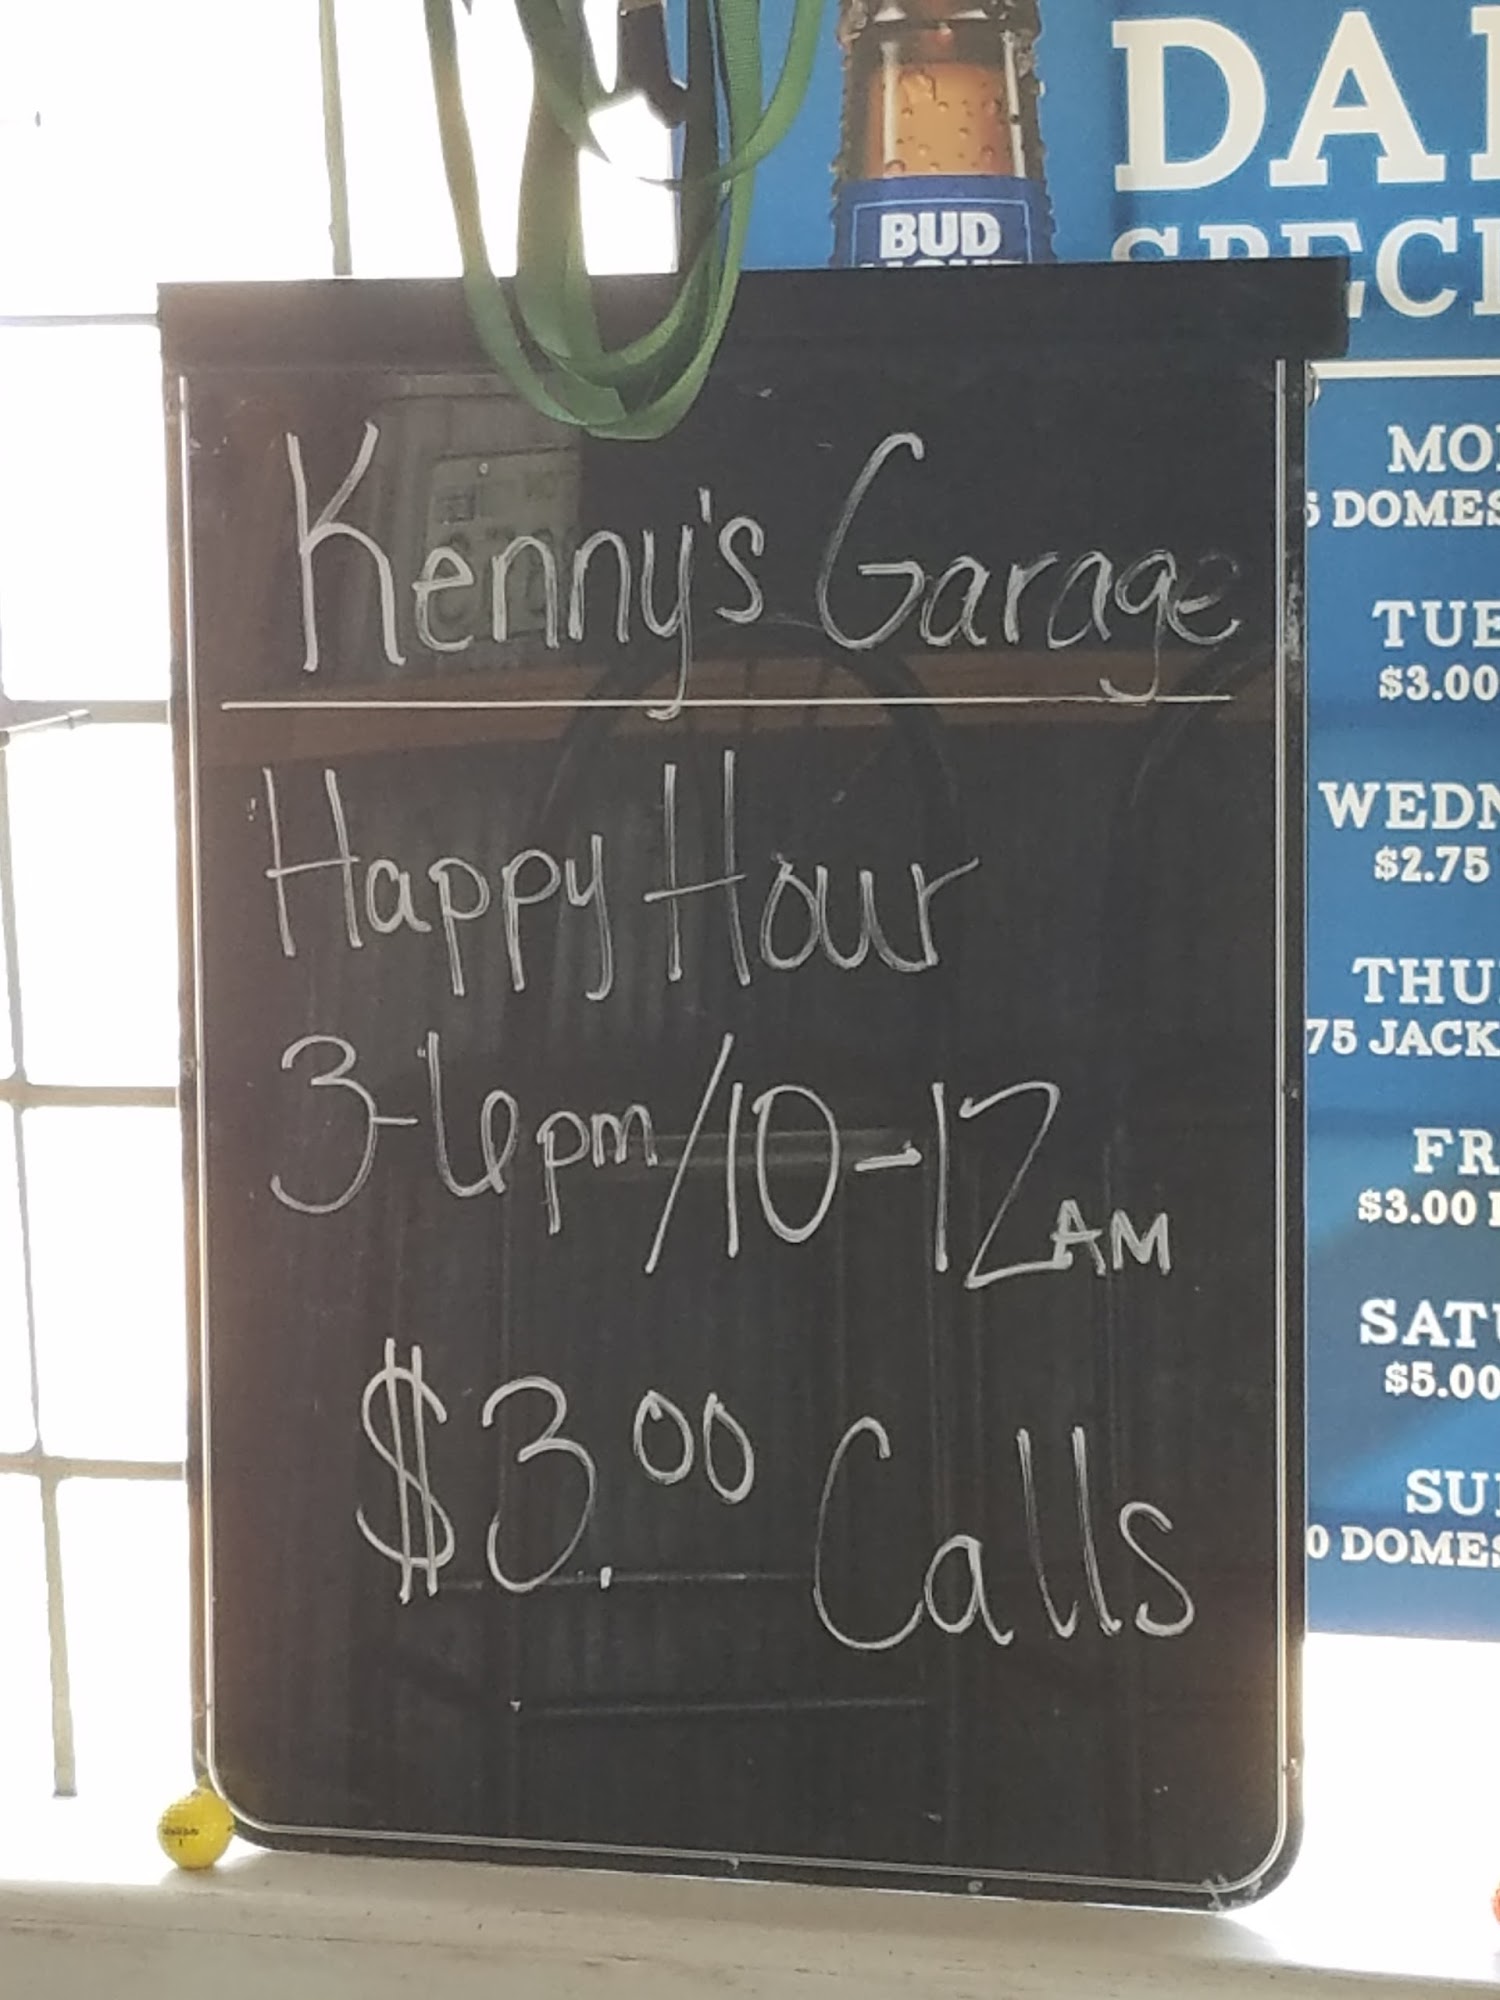 Kenny's Garage
Happy Hour
3-6pm/10-12AM
$3.00 Calls
BUD
DAI
SPECI
MO
DOMES
TUE
$3.00
WEDN
$2.75
THU
75 JACK
FR
$3.00
SATU
$5.00
SU
0 DOMES